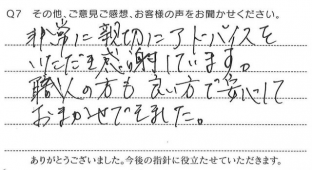 Q7 その他、ご意見ご感想、お客様の声をお聞かせください。
非常に親切にアドバイスを
いただき感謝しています。
職人の方も良い方で安心して
おまかせできました。
ありがとうございました。今後の指針に役立たせていただきます。